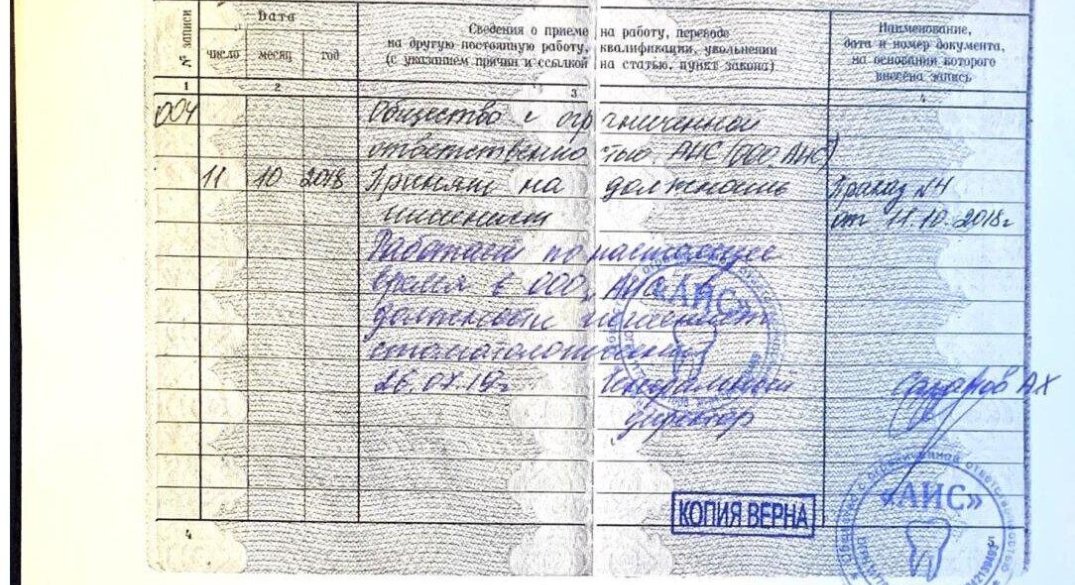 № записи
Дата
число
месяц
год
Сведения о приеме на работу, переводе
на другую постоянную работу, квалификации, увольнении
(с указанием причин и ссылкой на статью, пункт закона)
Наименование,
дата и номер документа,
на основании которого
внесена запись
1
2
3
4
004
Общество с ограниченной
ответственностью АИС (ООО АИС)
11 10 2018 Принят на должность
Приказ №4
от 11.10.2018г
Работает по настоящее
время в ООО "АИС" в
должности
Генеральный
директор
АХ
«АИС»
КОПИЯ ВЕРНА
«АИС»
4
5